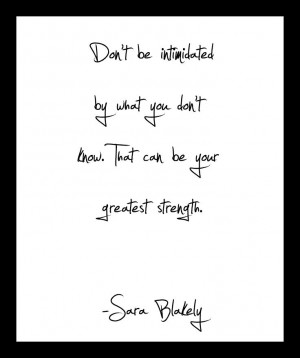 Don't be intimidated
by what you don't
know. That can be your
greatest strength.
-Sara Blakely